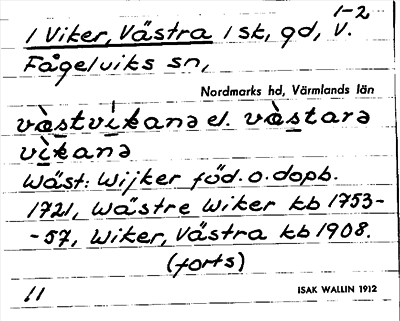 1-2
1 Viker, Västra 1 sk, gd, V.
Fågelviks sn,
Nordmarks hd, Värmlands län
væ̀stvíkanə el. væ̀starə
vìkanə
Wäst: Wijker föd. o. dopb.
1721, Wästre Wiker kb 1753-
-57, Wiker, Västra kb 1908.
(forts)
11
ISAK WALLIN 1912